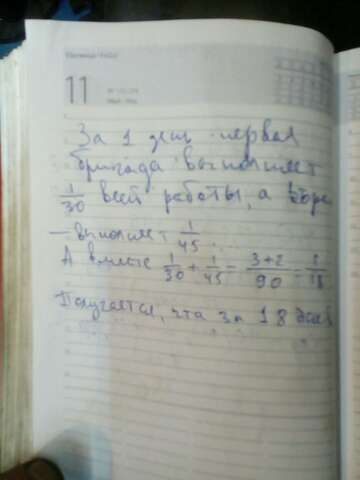 11
За 1 день первая
бригада выполняет
1/30 всей работы, а втора
— выполняет 1/45.
А вместе 1/30 + 1/45 = 3+2/90 = 1/18
Получается, что за 18 дней